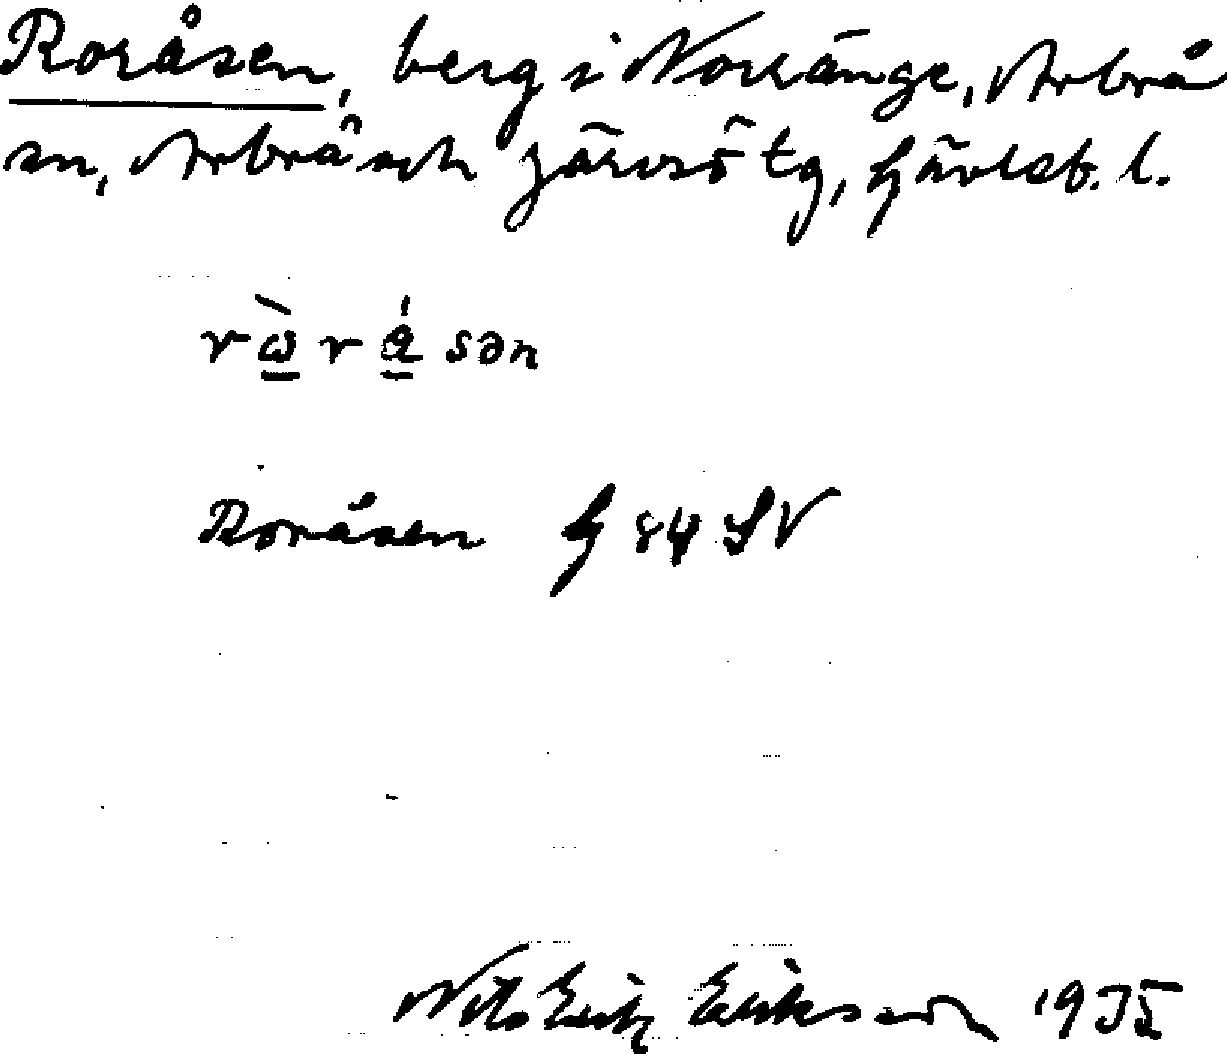 Roråsen, berg i Norränge, Arbrå
sn, Arbrå och Järvsö tg, Gävleb. l.
rὼ̲rá̲sən
Roråsen G 84 SV
Nils Erik Eriksson 1935